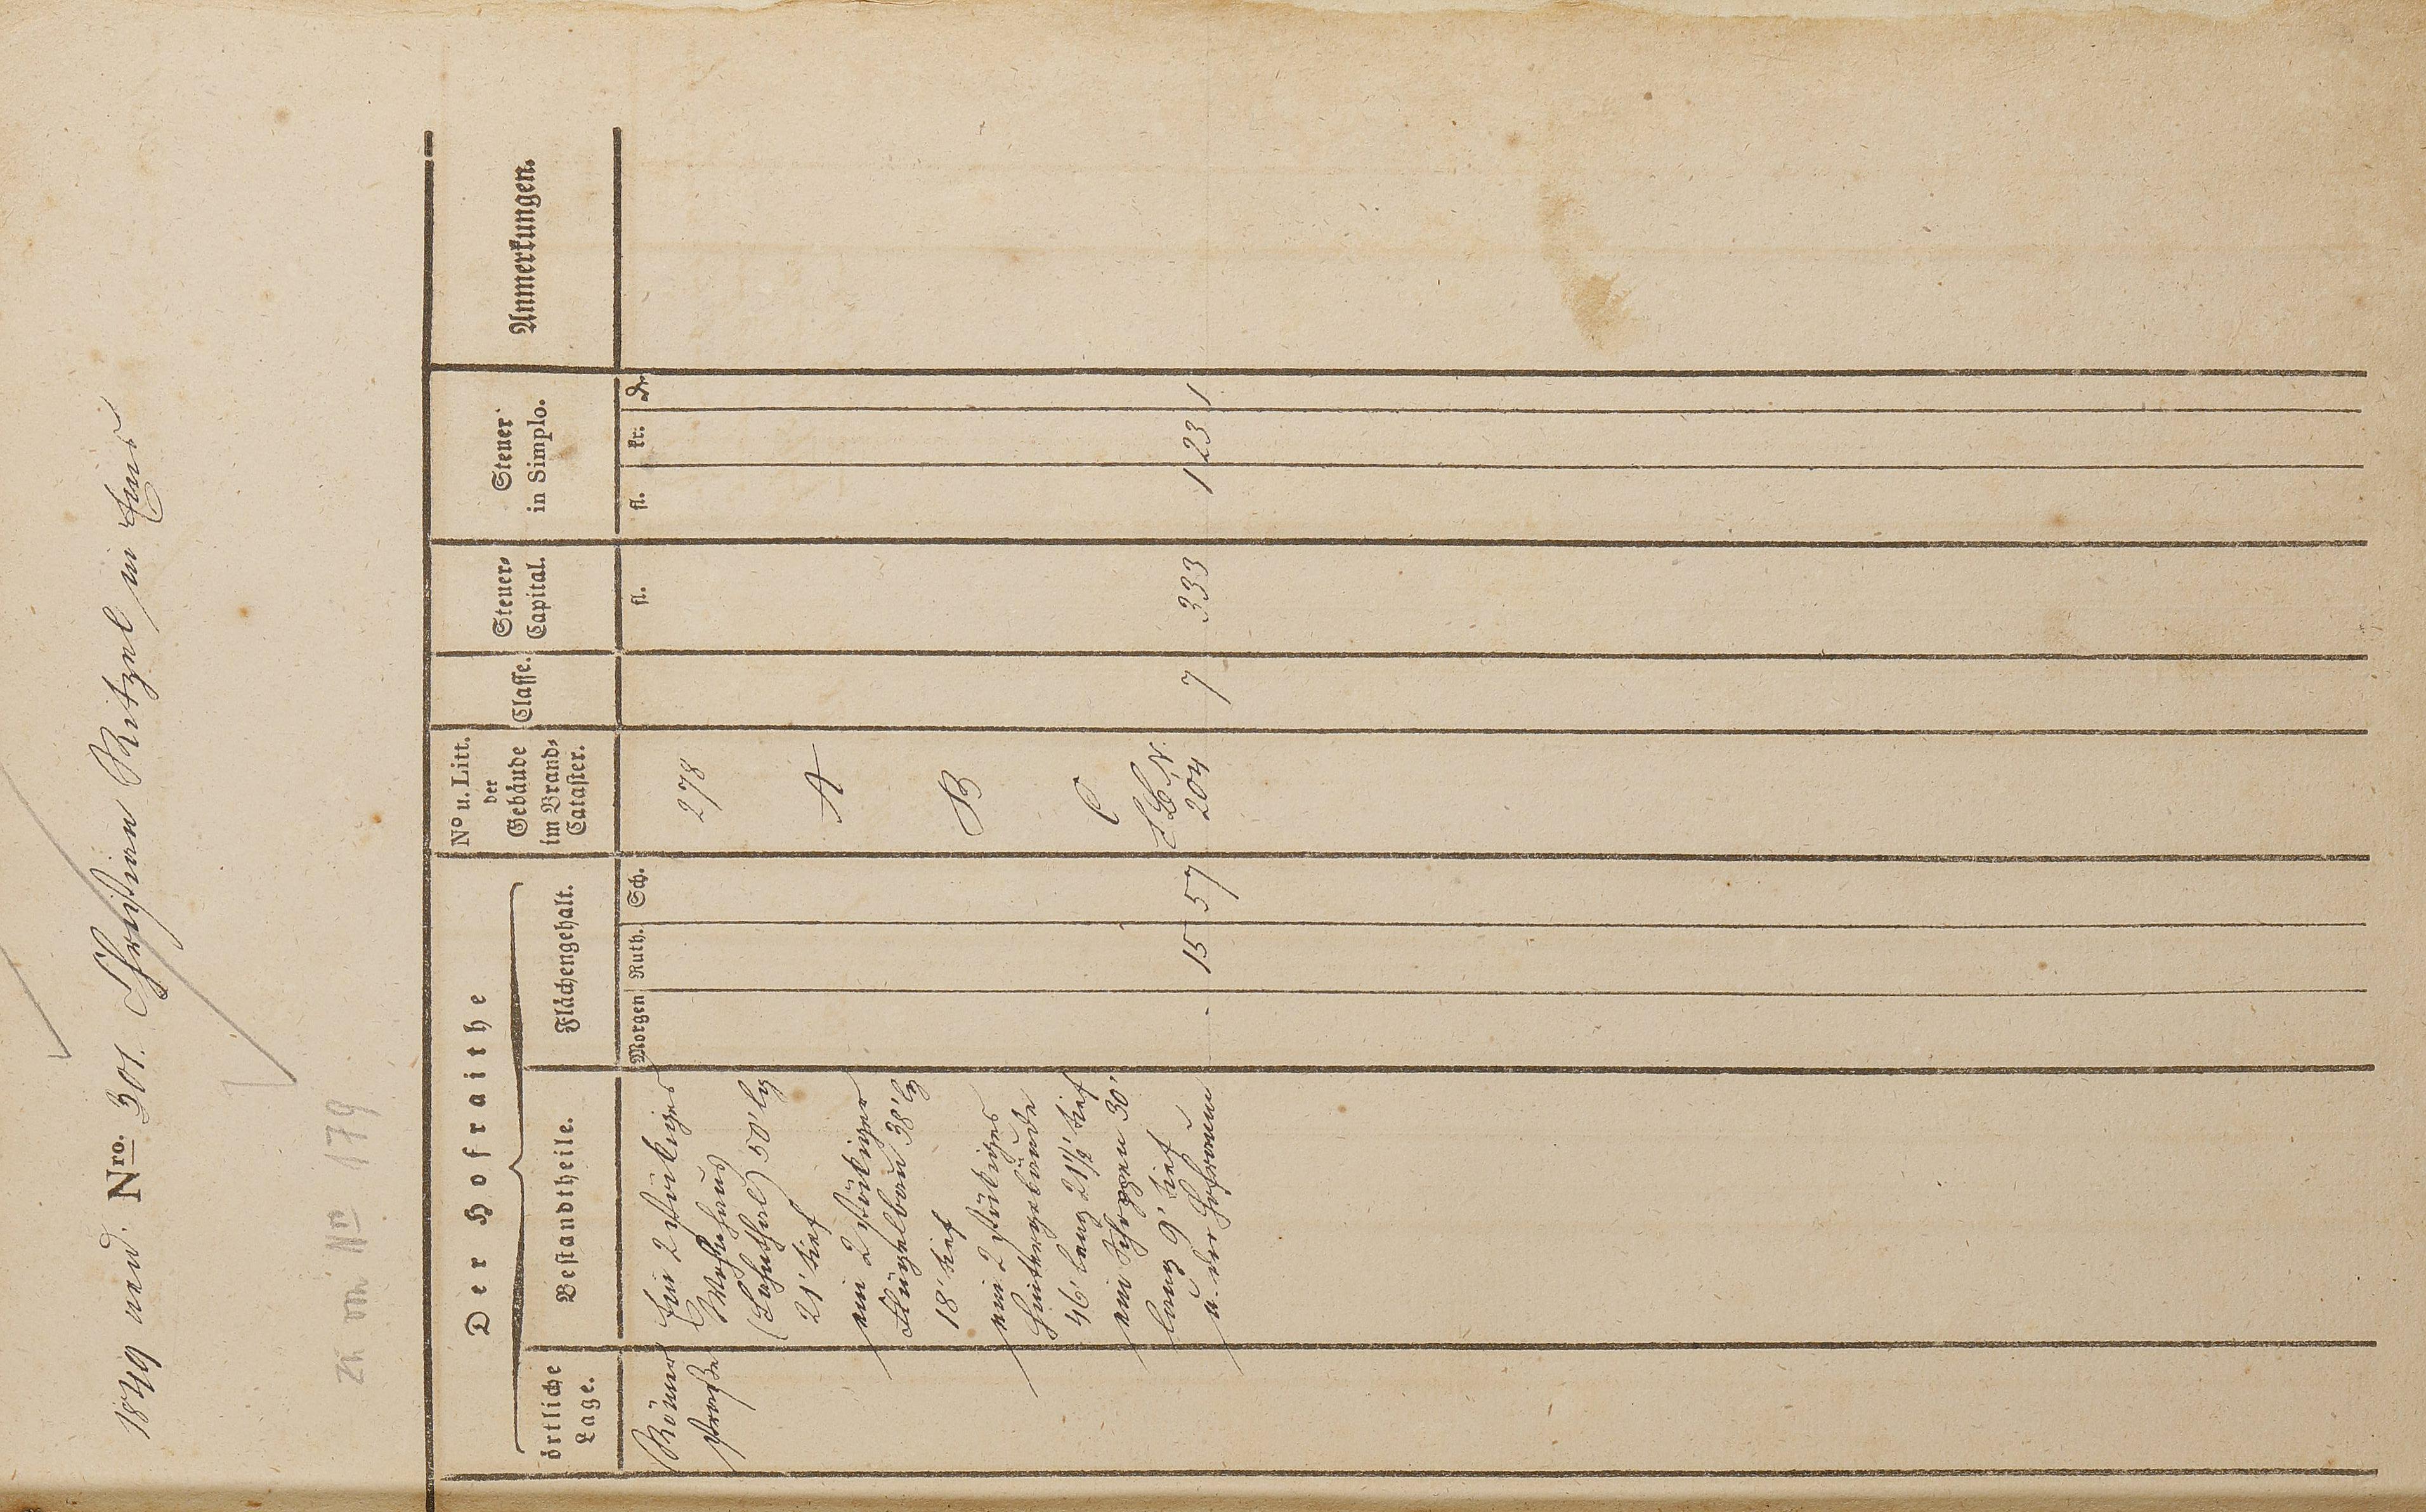 1849 add. Nro. 301. Christian Bitzel in Ems
zu von No 179
Der Hofraithe
örtliche Lage.
Bestandtheile.
Flächengehalt.
Morgen Ruth. Sch.
No u. Litt. der Gebäude im Brand-Cataster.
Classe.
Steuer-Capital.
fl.
Steuer in Simplo.
fl. kr. Dr.
Anmerkungen.
Römer
straße
Ein 2 stöckiges
Wohnhaus
50' lg
21' tief
278
A
ein 2 stöckiger
Flügelbau 38' lg
18' tief
B
ein 2 stöckiges
Hintergebäude
46' lang 21½' tief
C
ein Schoppen 30'
lang 9' tief
u. der Hofraum
- 15 57
L.B.N.
204
7 333 1 23 1